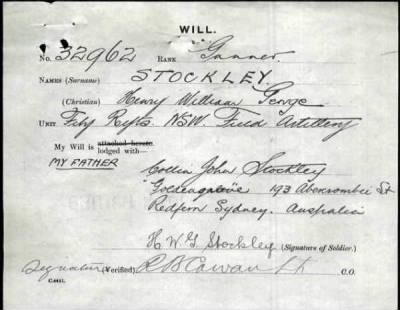 WILL.
No. 32962 RANK Gunner.
NAMES (Surname) STOCKLEY.
(Christian) Henry William George
UNIT Rfts. N.S.W. Field Artillery
My Will is attached hereto.
lodged with—
MY FATHER
John Stockley
193 Abercrombie St
Redfern Sydney. Australia
H W G Stockley (Signature of Soldier.)
Signature (Verified) R B Cowan Lt C.O.